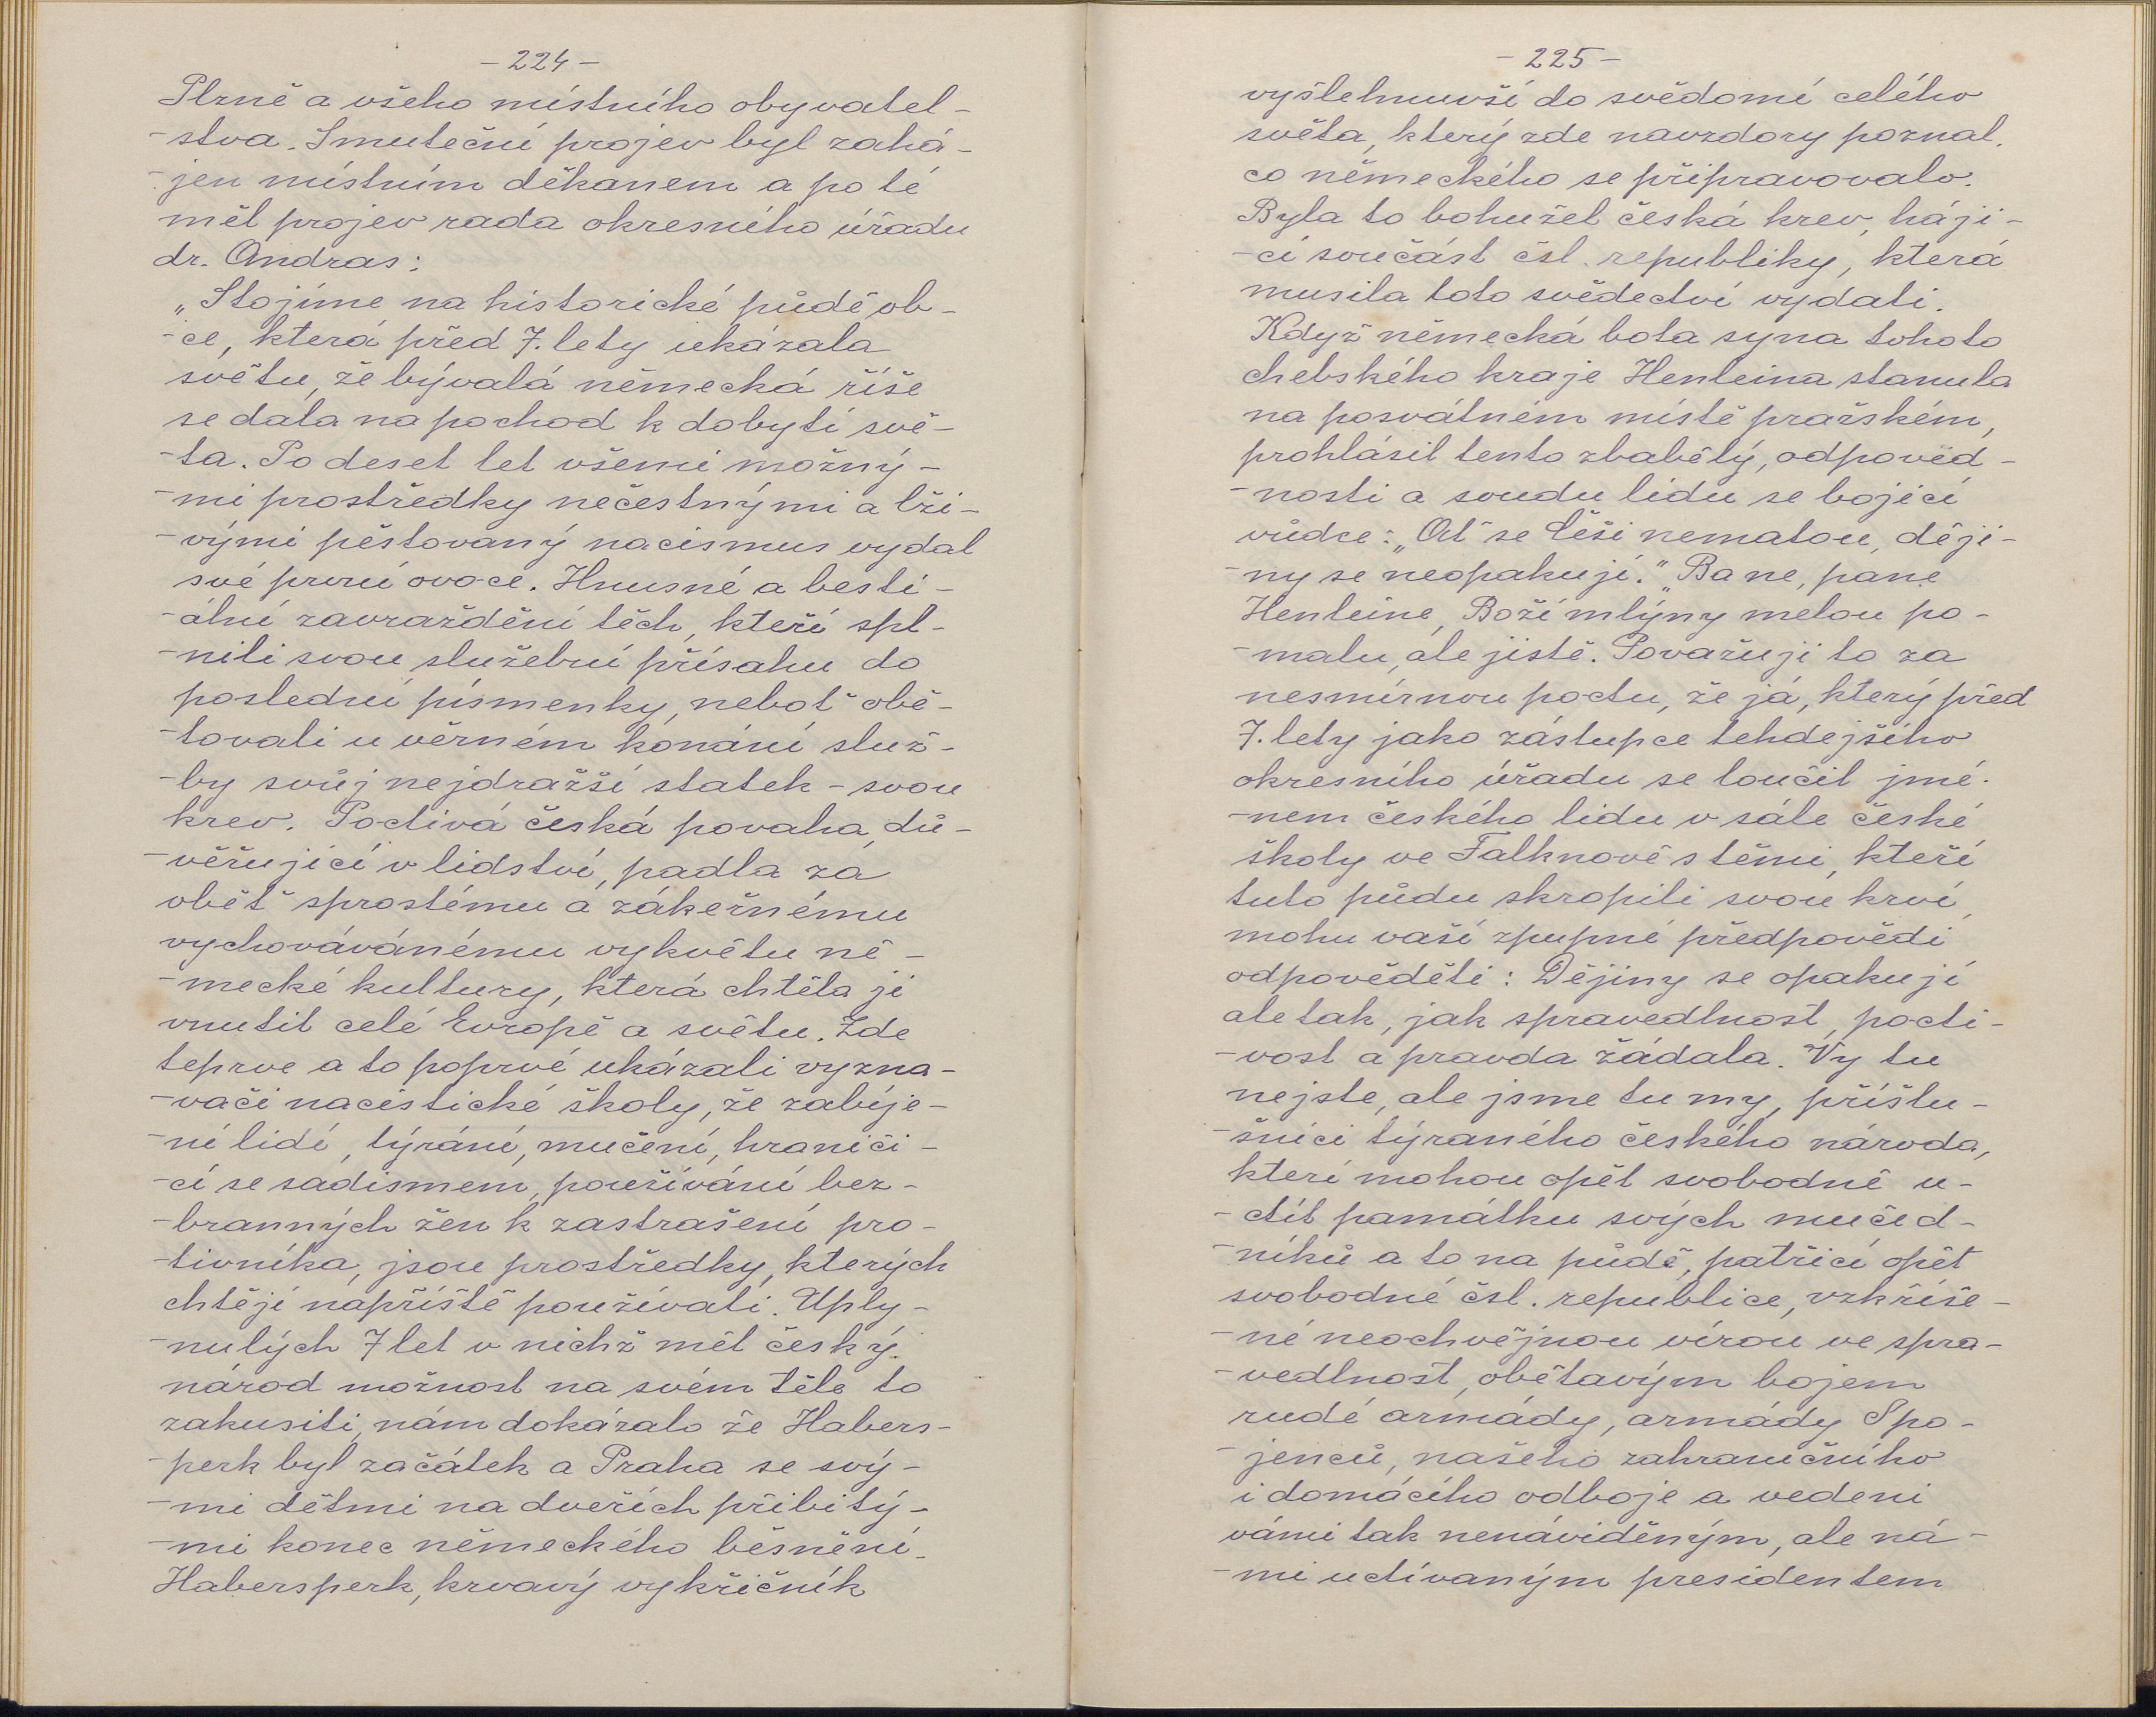 - 224 -
Plzně a všeho místního obyvatel-
-stva. Smuteční projev byl zahá-
-jen místním děkanem a po té
měl projev rada okresního úřadu
dr. Andras:
„Stojíme na historické půdě ob-
-ce, která před 7. lety ukázala
světu, že bývalá německá říše
se dala na pochod k dobytí svě-
-ta. Po deset let všemi možný-
-mi prostředky nečestnými a lži-
-vými pěstovaný nacismus vydal
své první ovoce. Hnusné a besti-
-ální zavraždění těch, kteří spl-
-nili svou služební přísahu do
poslední písmenky, neboť obě-
-tovali u věrném konání služ-
-by svůj nejdražší statek - svou
krev. Poctivá česká povaha, dů-
-věřující v lidství, padla za
oběť sprostému a zákeřnému
vychovávánému vykvětu ně-
-mecké kultury, která chtěla ji
vnutit celé Evropě a světu. Zde
teprve a to poprvé ukázali vyzna-
-vači nacistické školy, že zabíje-
-ní lidí, týrání, mučení, hraničí-
-cí se sadismem, používání bez-
-branných žen k zastrašení pro-
-tivníka, jsou prostředky, kterých
chtějí napříště používati. Uply-
-nulých 7 let v nichž měl český
národ možnost na svém těle to
zakusiti, nám dokázalo že Habers-
-perk byl začátek a Praha se svý-
-mi dětmi na dveřích přibitý-
-mi konec německého běsnění.
Habersperk, krvavý vykřičník
- 225 -
vyšlehnuvší do svědomí celého
světa, který zde navzdory poznal,
co německého se připravovalo.
Byla to bohužel česká krev, háji-
-cí součást čsl. republiky, která
musila toto svědectví vydati.
Když německá bota syna tohoto
chebského kraje Henleina stanula
na posvátném místě pražském,
prohlásil tento zbabělý, odpověd-
-nosti a soudu lidu se bojící
vůdce: „Ať se Češi nematou, ději-
-ny se neopakují." Ba ne, pane
Henleine, Boží mlýny melou po-
-malu, ale jistě. Považuji to za
nesmírnou poctu, že já, který před
7. lety jako zástupce tehdejšího
okresního úřadu se loučil jmé-
-nem českého lidu v sále české
školy ve Falknově s těmi, kteří
tuto půdu skropili svou krví,
mohu vaší zpupné předpovědi
odpověděti: Dějiny se opakují
ale tak, jak spravedlnost, pocti-
-vost a pravda žádala. Vy tu
nejste, ale jsme tu my, příslu-
-šníci týraného českého národa,
kteří mohou opět svobodně u-
-ctít památku svých mučed-
-níků a to na půdě, patřící opět
svobodné čsl. republice, vzkříše-
-né neochvějnou vírou ve spra-
-vedlnost, obětavým bojem
rudé armády, armády Spo-
-jenců, našeho zahraničního
i domácího odboje a vedeni
vámi tak nenáviděným, ale ná-
-mi uctívaným presidentem